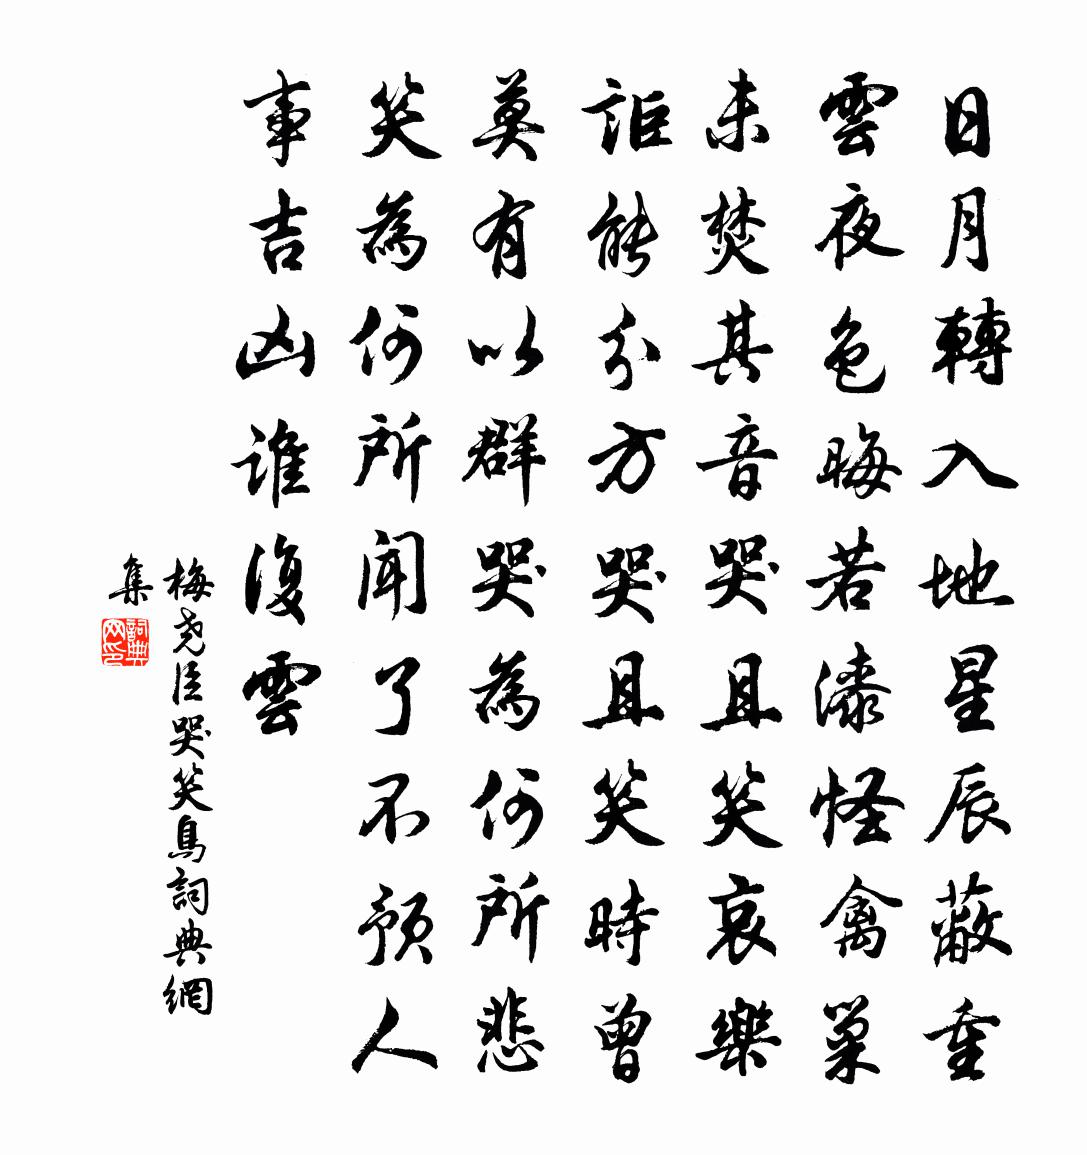 日月轉入地星辰蔽重
雲夜色晦若漆怪禽巢
未焚其音哭且笑哀樂
詎能分方哭且笑時曾
莫有以群哭為何所悲
笑為何所聞了不預人
事吉凶誰復雲
梅堯臣哭笑鳥詞典網
集
詞典
网印